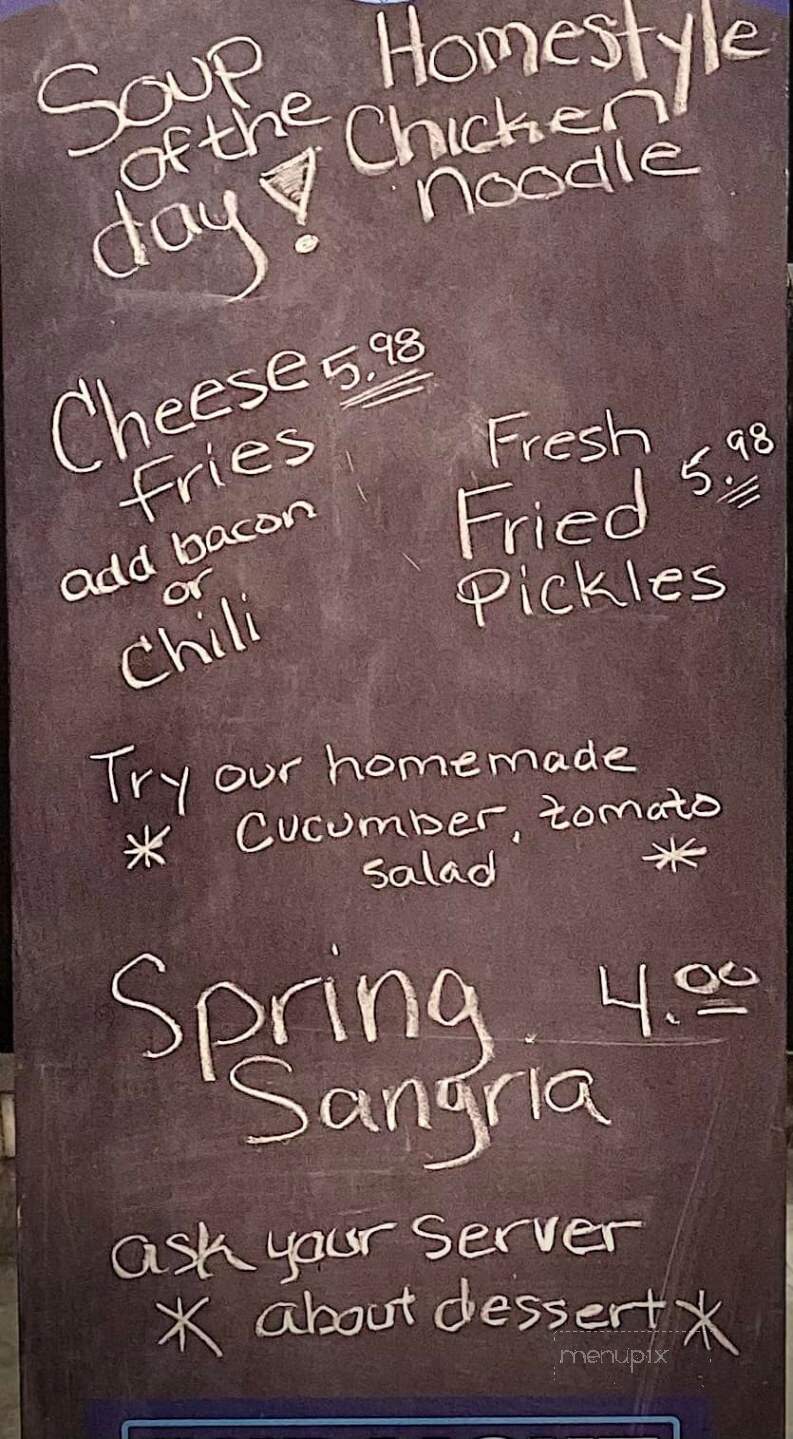 Soup
of the
day!
Homestyle
Chicken
noodle
Cheese 5.98
fries
add bacon
or
Chili
Fresh
Fried 5.98
Pickles
Try our homemade
* Cucumber, tomato *
salad
Spring 4.00
Sangria
ask your server
* about dessert *
menupix